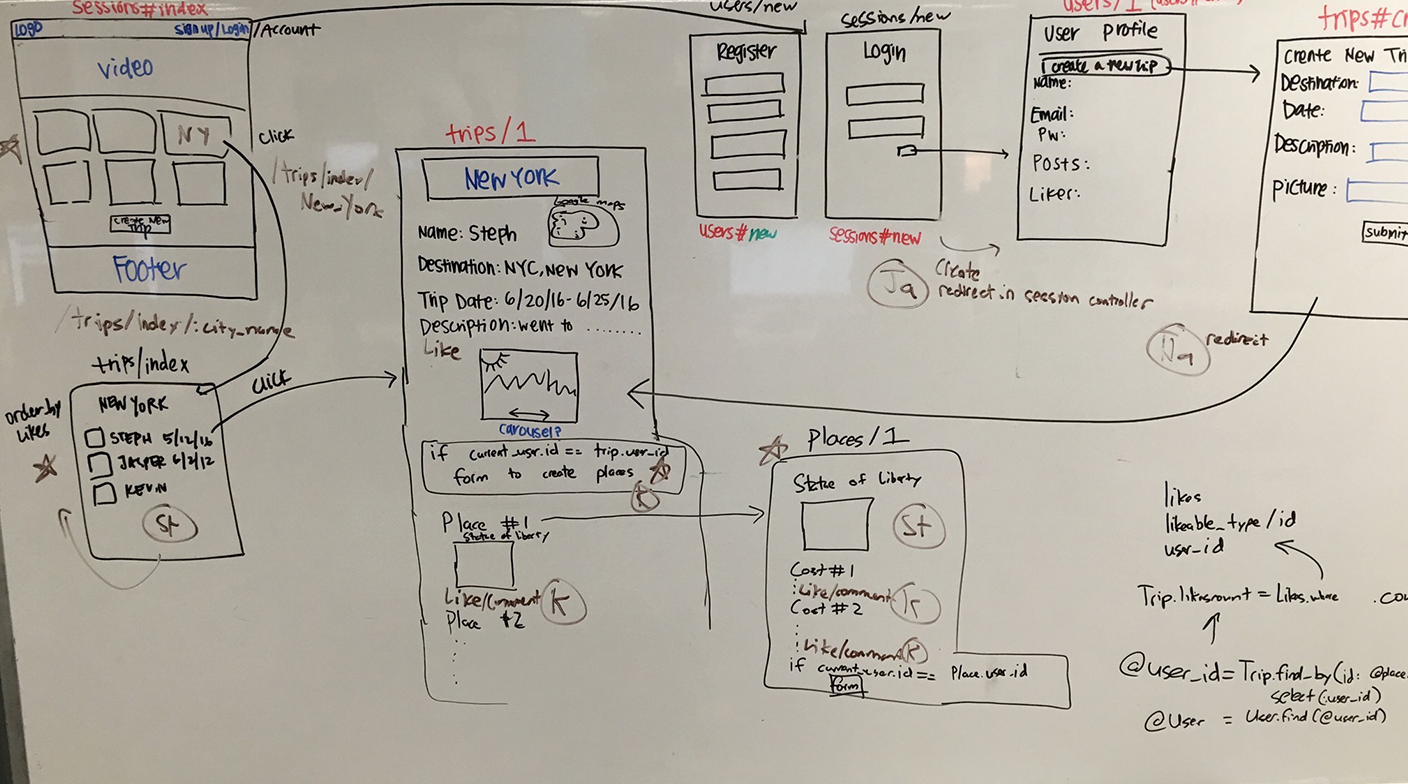 sessions#index
LOGO
sign up/Login/Account
video
NY
create new trip
Footer
click
/trips/index/
New_York
/trips/index/:city_name
trips/index
NEW YORK
STEPH 5/12/16
JASPER 6/2/12
KEVIN
St
order by
likes
click
trips/1
NEW YORK
Google maps
Name: Steph
Destination: NYC, New York
Trip Date: 6/20/16-6/25/16
Description: went to ........
Like
carousel?
if current_user.id == trip.user_id
form to create places
K
Place #1
Statue of liberty
Like/Comment
K
Place #2
users/new
Register
users#new
sessions/new
Login
sessions#new
create
redirect in session controller
Ja
users/1
User Profile
create a new trip
Name:
Email:
PW:
Posts:
Likes:
trips#c
Create New Tri
Destination:
Date:
Description:
picture:
submit
Na
redirect
Places/1
Statue of Liberty
St
Cost #1
: Like/comment
K
Cost #2
: Like/comment
K
if current_user.id == Place.user_id
form
likes
likeable_type/id
user_id
Trip.likesmount = Likes.where .cou
@user_id = Trip.find_by(id: @place.
select(:user_id)
@User = User.find(@user_id)